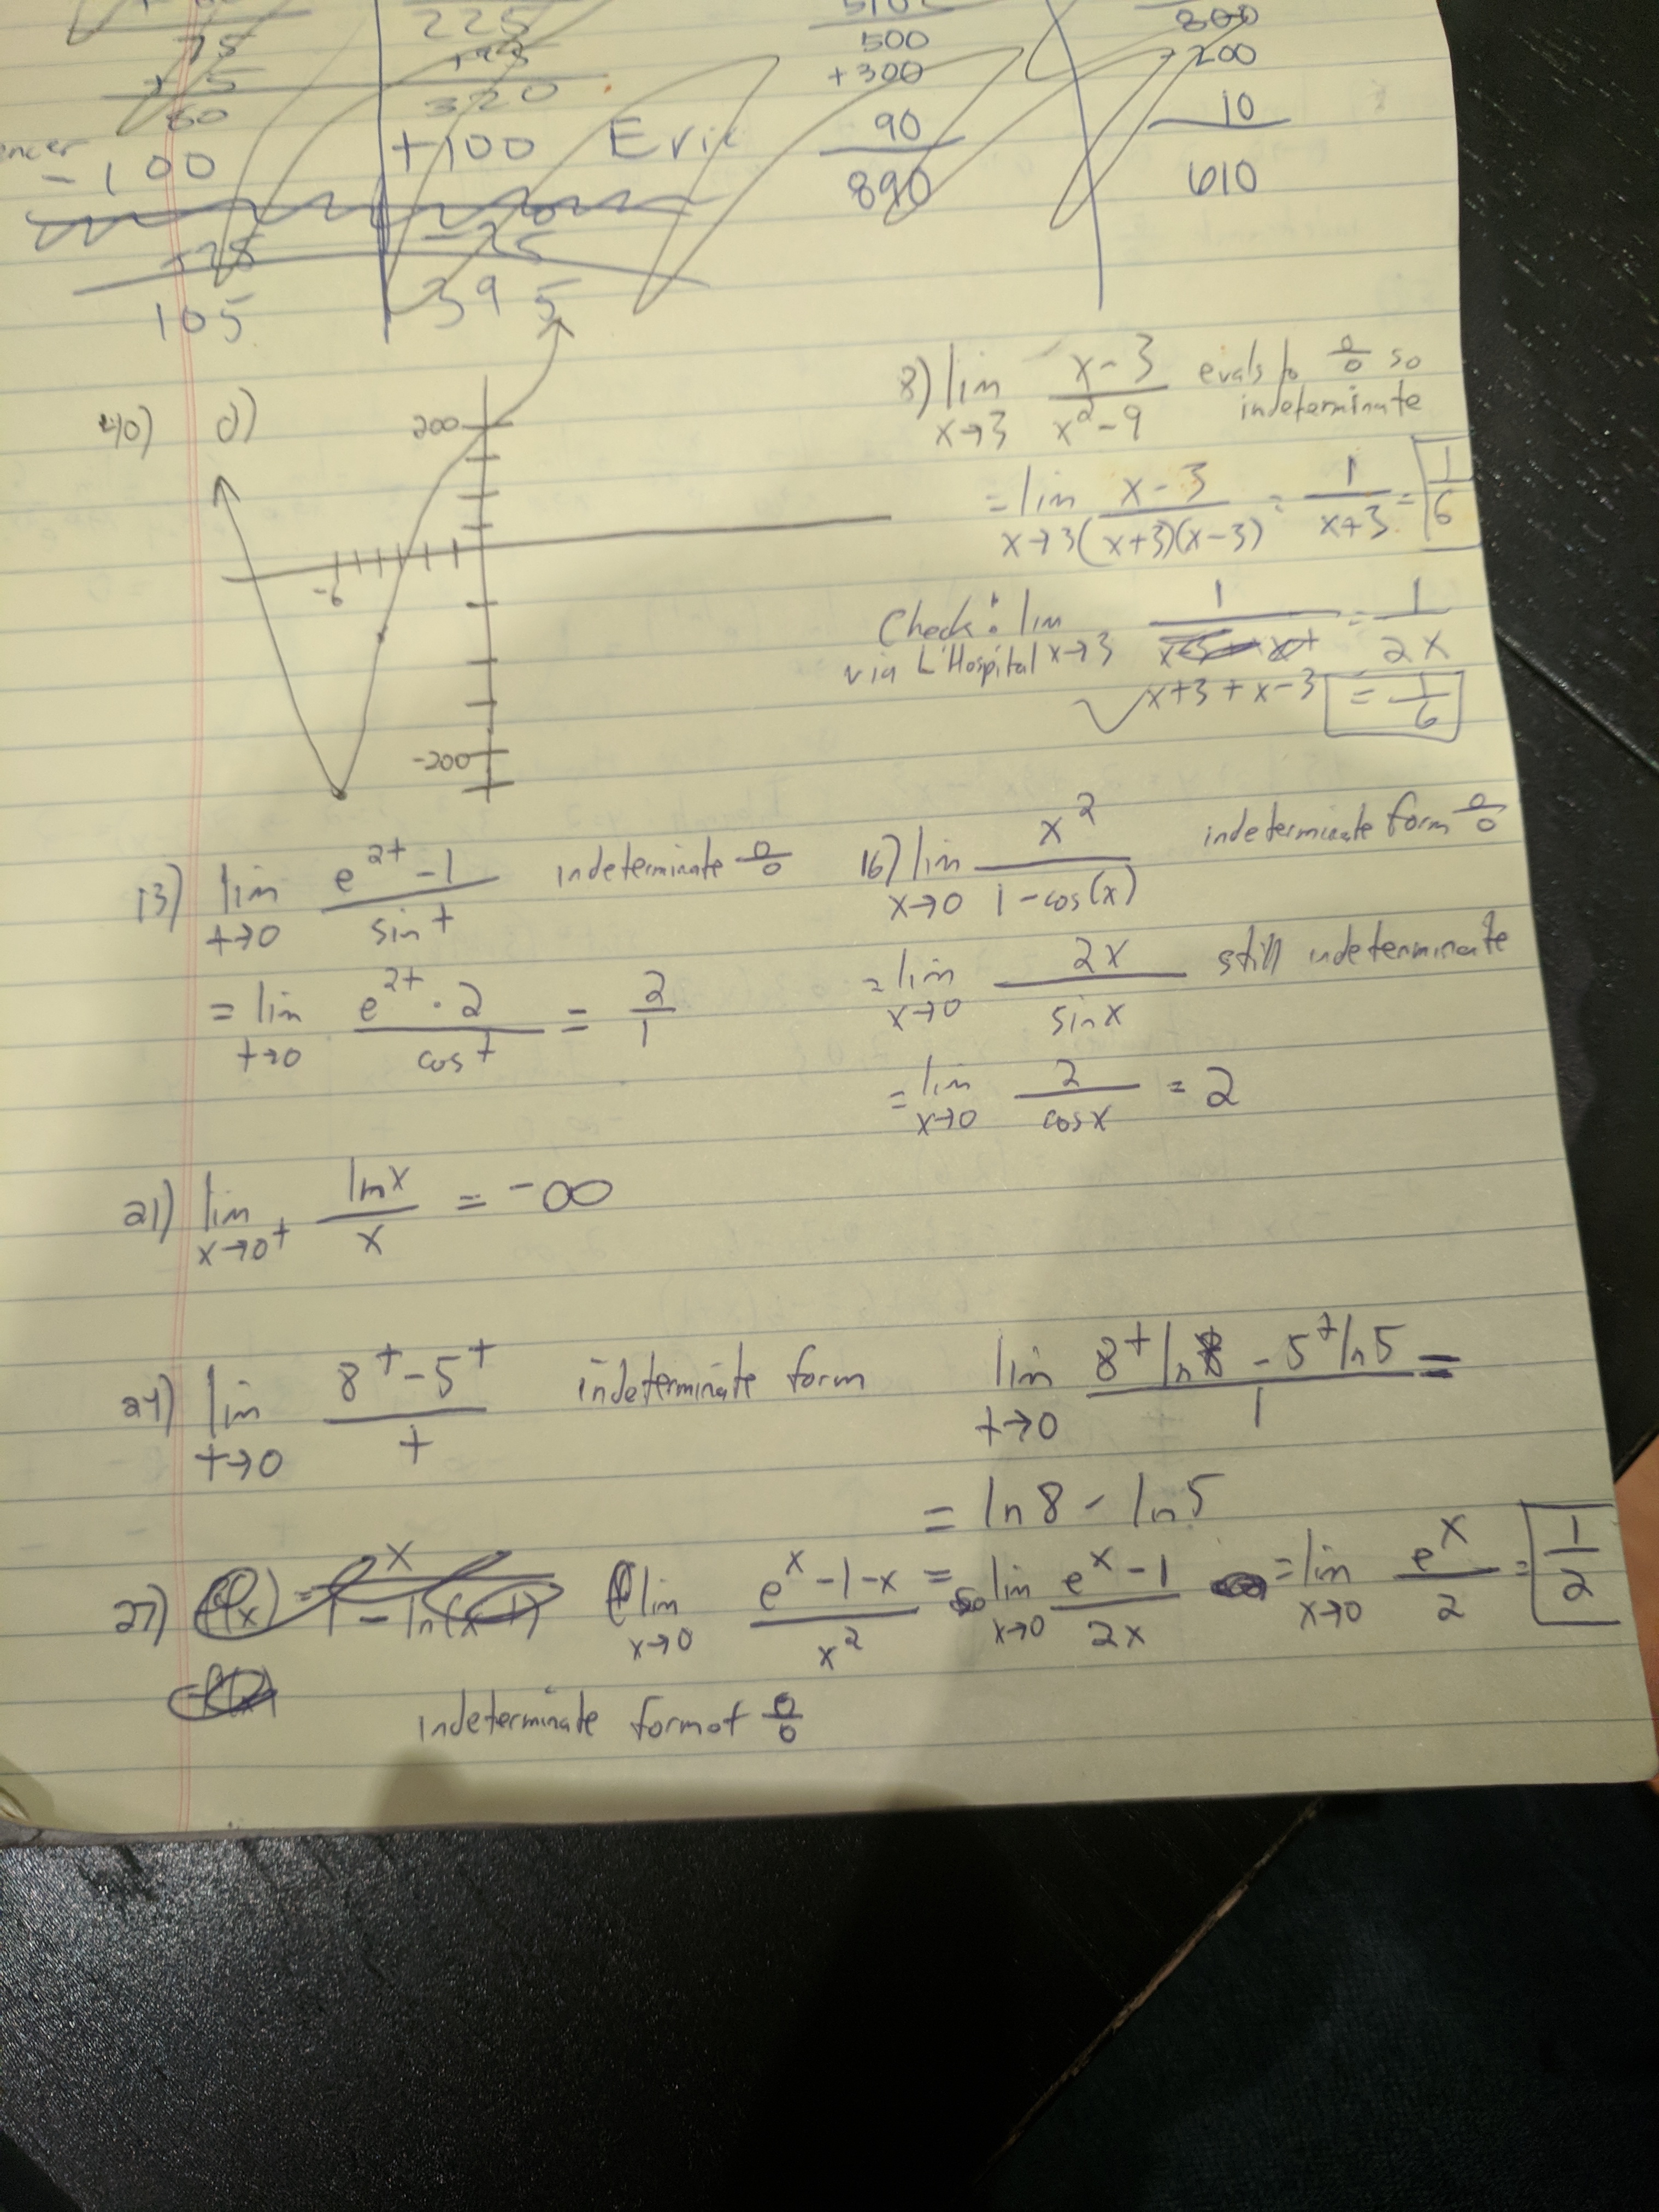 225
75
195
+ 5
80
320
-100
+100 Eric
-25
-25
105
395
510
500
+300
90
890
800
200
10
610
40) d)
200
-6
-200
8) lim x→3 x-3 / x²-9 evals to 0/0 so
indeterminate
= lim x→3 x-3 / (x+3)(x-3) = 1 / x+3 = 1/6
Check: lim x→3 1 / x+3+x-3 = 1 / 2x
via L'Hospital
✓ = 1/6
13) lim t→0 e^2t - 1 / sin t indeterminate 0/0
= lim t→0 e^2t · 2 / cos t = 2/1
16) lim x→0 x² / 1-cos(x) indeterminate form 0/0
= lim x→0 2x / sin x still indeterminate
= lim x→0 2 / cos x = 2
21) lim x→0+ ln x / x = -∞
24) lim t→0 8^t - 5^t / t indeterminate form lim t→0 8^t ln 8 - 5^t ln 5 / 1 =
= ln 8 - ln 5
27) f(x) = x / 1 - ln(x-1) lim x→0 e^x - 1 - x / x² = lim x→0 e^x - 1 / 2x = lim x→0 e^x / 2 = 1/2
indeterminate form of 0/0